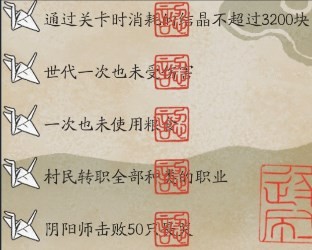 通过关卡时消耗的结晶不超过3200块
世代一次也未受伤害
一次也未使用粮食
村民转职全部种类的职业
阴阳师击败50只